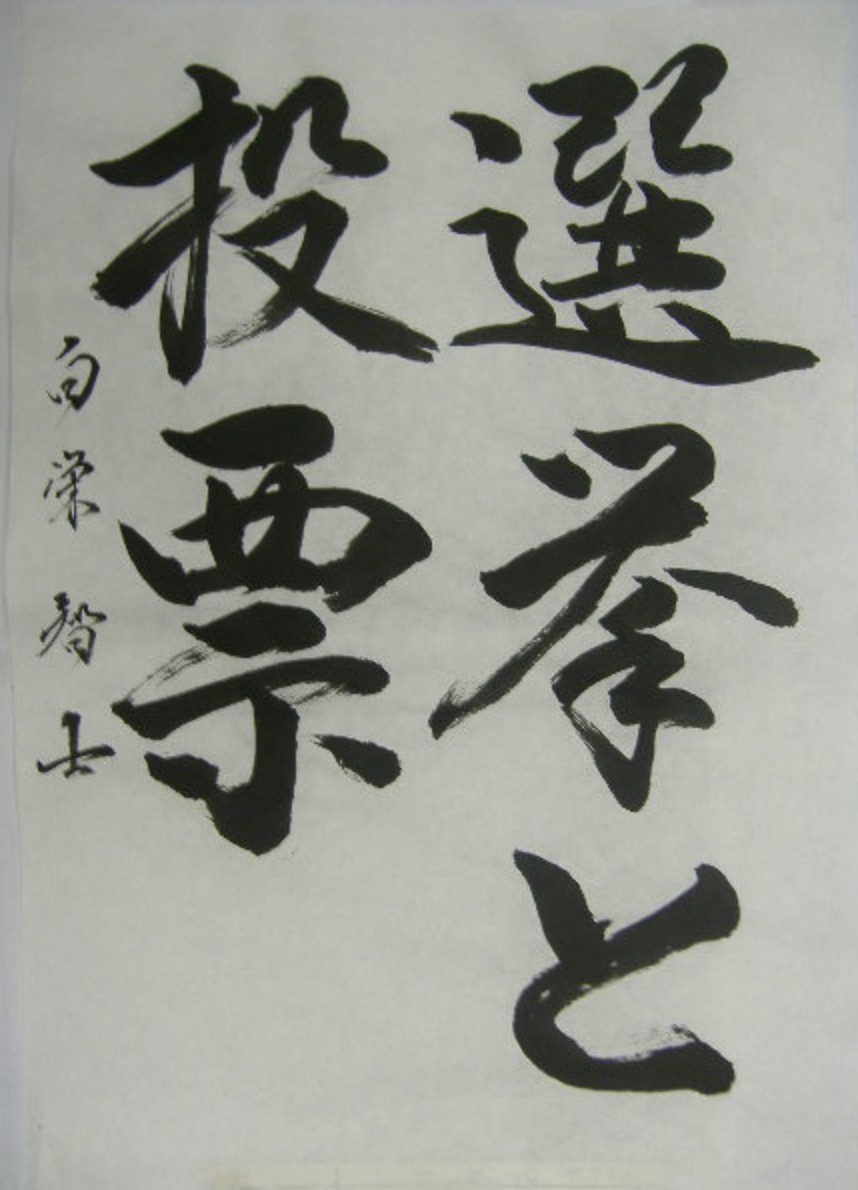 選挙と
投票
白栄智士